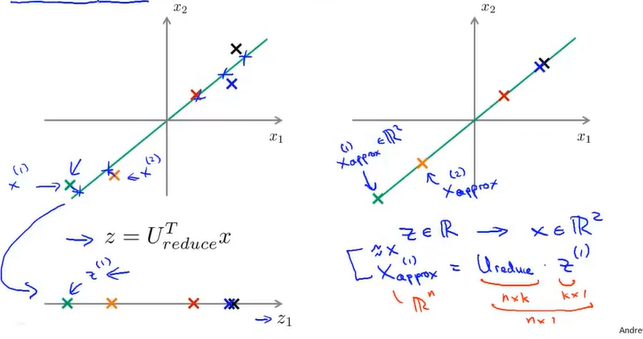 x₂
x₁
x⁽¹⁾
x⁽²⁾
→ z = Uᵀreduce x
z⁽¹⁾
→ z₁
x₂
x₁
x⁽¹⁾approx ∈ ℝ²
x⁽²⁾approx
z ∈ ℝ → x ∈ ℝ²
≈ x
x⁽¹⁾approx = Ureduce · z⁽¹⁾
ℝⁿ
n×k
k×1
n×1
Andre